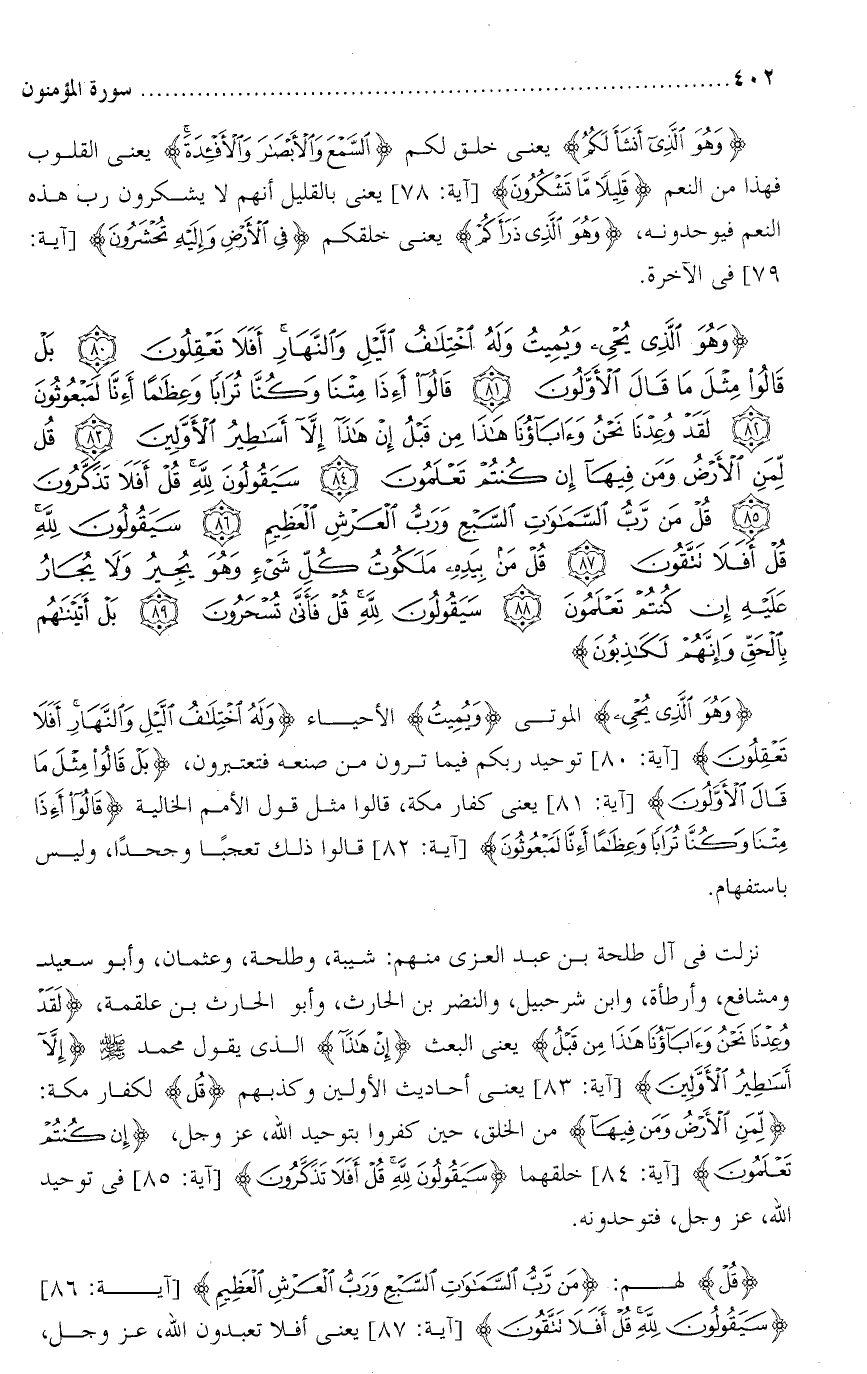 ٤٠٢ ........................................................................ سورة المؤمنون
﴿وَهُوَ ٱلَّذِىٓ أَنشَأَ لَكُمُ﴾ يعنى خلق لكم ﴿ٱلسَّمْعَ وَٱلْأَبْصَٰرَ وَٱلْأَفْـِٔدَةَ ۚ﴾ يعنى القلوب
فهذا من النعم ﴿قَلِيلًا مَّا تَشْكُرُونَ﴾ [آية: ٧٨] يعنى بالقليل أنهم لا يشكرون رب هذه
النعم فيوحدونه، ﴿وَهُوَ ٱلَّذِى ذَرَأَكُمْ﴾ يعنى خلقكم ﴿فِى ٱلْأَرْضِ وَإِلَيْهِ تُحْشَرُونَ﴾ [آية:
٧٩] فى الآخرة.
﴿وَهُوَ ٱلَّذِى يُحْىِۦ وَيُمِيتُ وَلَهُ ٱخْتِلَٰفُ ٱلَّيْلِ وَٱلنَّهَارِ ۚ أَفَلَا تَعْقِلُونَ ٨٠ بَلْ
قَالُوا۟ مِثْلَ مَا قَالَ ٱلْأَوَّلُونَ ٨١ قَالُوٓا۟ أَءِذَا مِتْنَا وَكُنَّا تُرَابًا وَعِظَٰمًا أَءِنَّا لَمَبْعُوثُونَ
٨٢ لَقَدْ وُعِدْنَا نَحْنُ وَءَابَآؤُنَا هَٰذَا مِن قَبْلُ إِنْ هَٰذَآ إِلَّآ أَسَٰطِيرُ ٱلْأَوَّلِينَ ٨٣ قُل
لِّمَنِ ٱلْأَرْضُ وَمَن فِيهَآ إِن كُنتُمْ تَعْلَمُونَ ٨٤ سَيَقُولُونَ لِلَّهِ ۚ قُلْ أَفَلَا تَذَكَّرُونَ
٨٥ قُلْ مَن رَّبُّ ٱلسَّمَٰوَٰتِ ٱلسَّبْعِ وَرَبُّ ٱلْعَرْشِ ٱلْعَظِيمِ ٨٦ سَيَقُولُونَ لِلَّهِ ۚ
قُلْ أَفَلَا تَتَّقُونَ ٨٧ قُلْ مَنۢ بِيَدِهِۦ مَلَكُوتُ كُلِّ شَىْءٍ وَهُوَ يُجِيرُ وَلَا يُجَارُ
عَلَيْهِ إِن كُنتُمْ تَعْلَمُونَ ٨٨ سَيَقُولُونَ لِلَّهِ ۚ قُلْ فَأَنَّىٰ تُسْحَرُونَ ٨٩ بَلْ أَتَيْنَٰهُم
بِٱلْحَقِّ وَإِنَّهُمْ لَكَٰذِبُونَ﴾
﴿وَهُوَ ٱلَّذِى يُحْىِۦ﴾ الموتى ﴿وَيُمِيتُ﴾ الأحياء ﴿وَلَهُ ٱخْتِلَٰفُ ٱلَّيْلِ وَٱلنَّهَارِ ۚ أَفَلَا
تَعْقِلُونَ﴾ [آية: ٨٠] توحيد ربكم فيما ترون من صنعه فتعتبرون، ﴿بَلْ قَالُوا۟ مِثْلَ مَا
قَالَ ٱلْأَوَّلُونَ﴾ [آية: ٨١] يعنى كفار مكة، قالوا مثل قول الأمم الخالية ﴿قَالُوٓا۟ أَءِذَا
مِتْنَا وَكُنَّا تُرَابًا وَعِظَٰمًا أَءِنَّا لَمَبْعُوثُونَ﴾ [آية: ٨٢] قالوا ذلك تعجبًا وجحدًا، وليس
باستفهام.
نزلت فى آل طلحة بن عبد العزى منهم: شيبة، وطلحة، وعثمان، وأبو سعيد
ومشافع، وأرطأة، وابن شرحبيل، والنضر بن الحارث، وأبو الحارث بن علقمة، ﴿لَقَدْ
وُعِدْنَا نَحْنُ وَءَابَآؤُنَا هَٰذَا مِن قَبْلُ﴾ يعنى البعث ﴿إِنْ هَٰذَآ﴾ الذى يقول محمد ﷺ ﴿إِلَّآ
أَسَٰطِيرُ ٱلْأَوَّلِينَ﴾ [آية: ٨٣] يعنى أحاديث الأولين وكذبهم ﴿قُل﴾ لكفار مكة:
﴿لِّمَنِ ٱلْأَرْضُ وَمَن فِيهَآ﴾ من الخلق، حين كفروا بتوحيد الله، عز وجل، ﴿إِن كُنتُمْ
تَعْلَمُونَ﴾ [آية: ٨٤] خلقهما ﴿سَيَقُولُونَ لِلَّهِ ۚ قُلْ أَفَلَا تَذَكَّرُونَ﴾ [آية: ٨٥] فى توحيد
الله، عز وجل، فتوحدونه.
﴿قُلْ﴾ لهم: ﴿مَن رَّبُّ ٱلسَّمَٰوَٰتِ ٱلسَّبْعِ وَرَبُّ ٱلْعَرْشِ ٱلْعَظِيمِ﴾ [آية: ٨٦]
﴿سَيَقُولُونَ لِلَّهِ ۚ قُلْ أَفَلَا تَتَّقُونَ﴾ [آية: ٨٧] يعنى أفلا تعبدون الله، عز وجل،